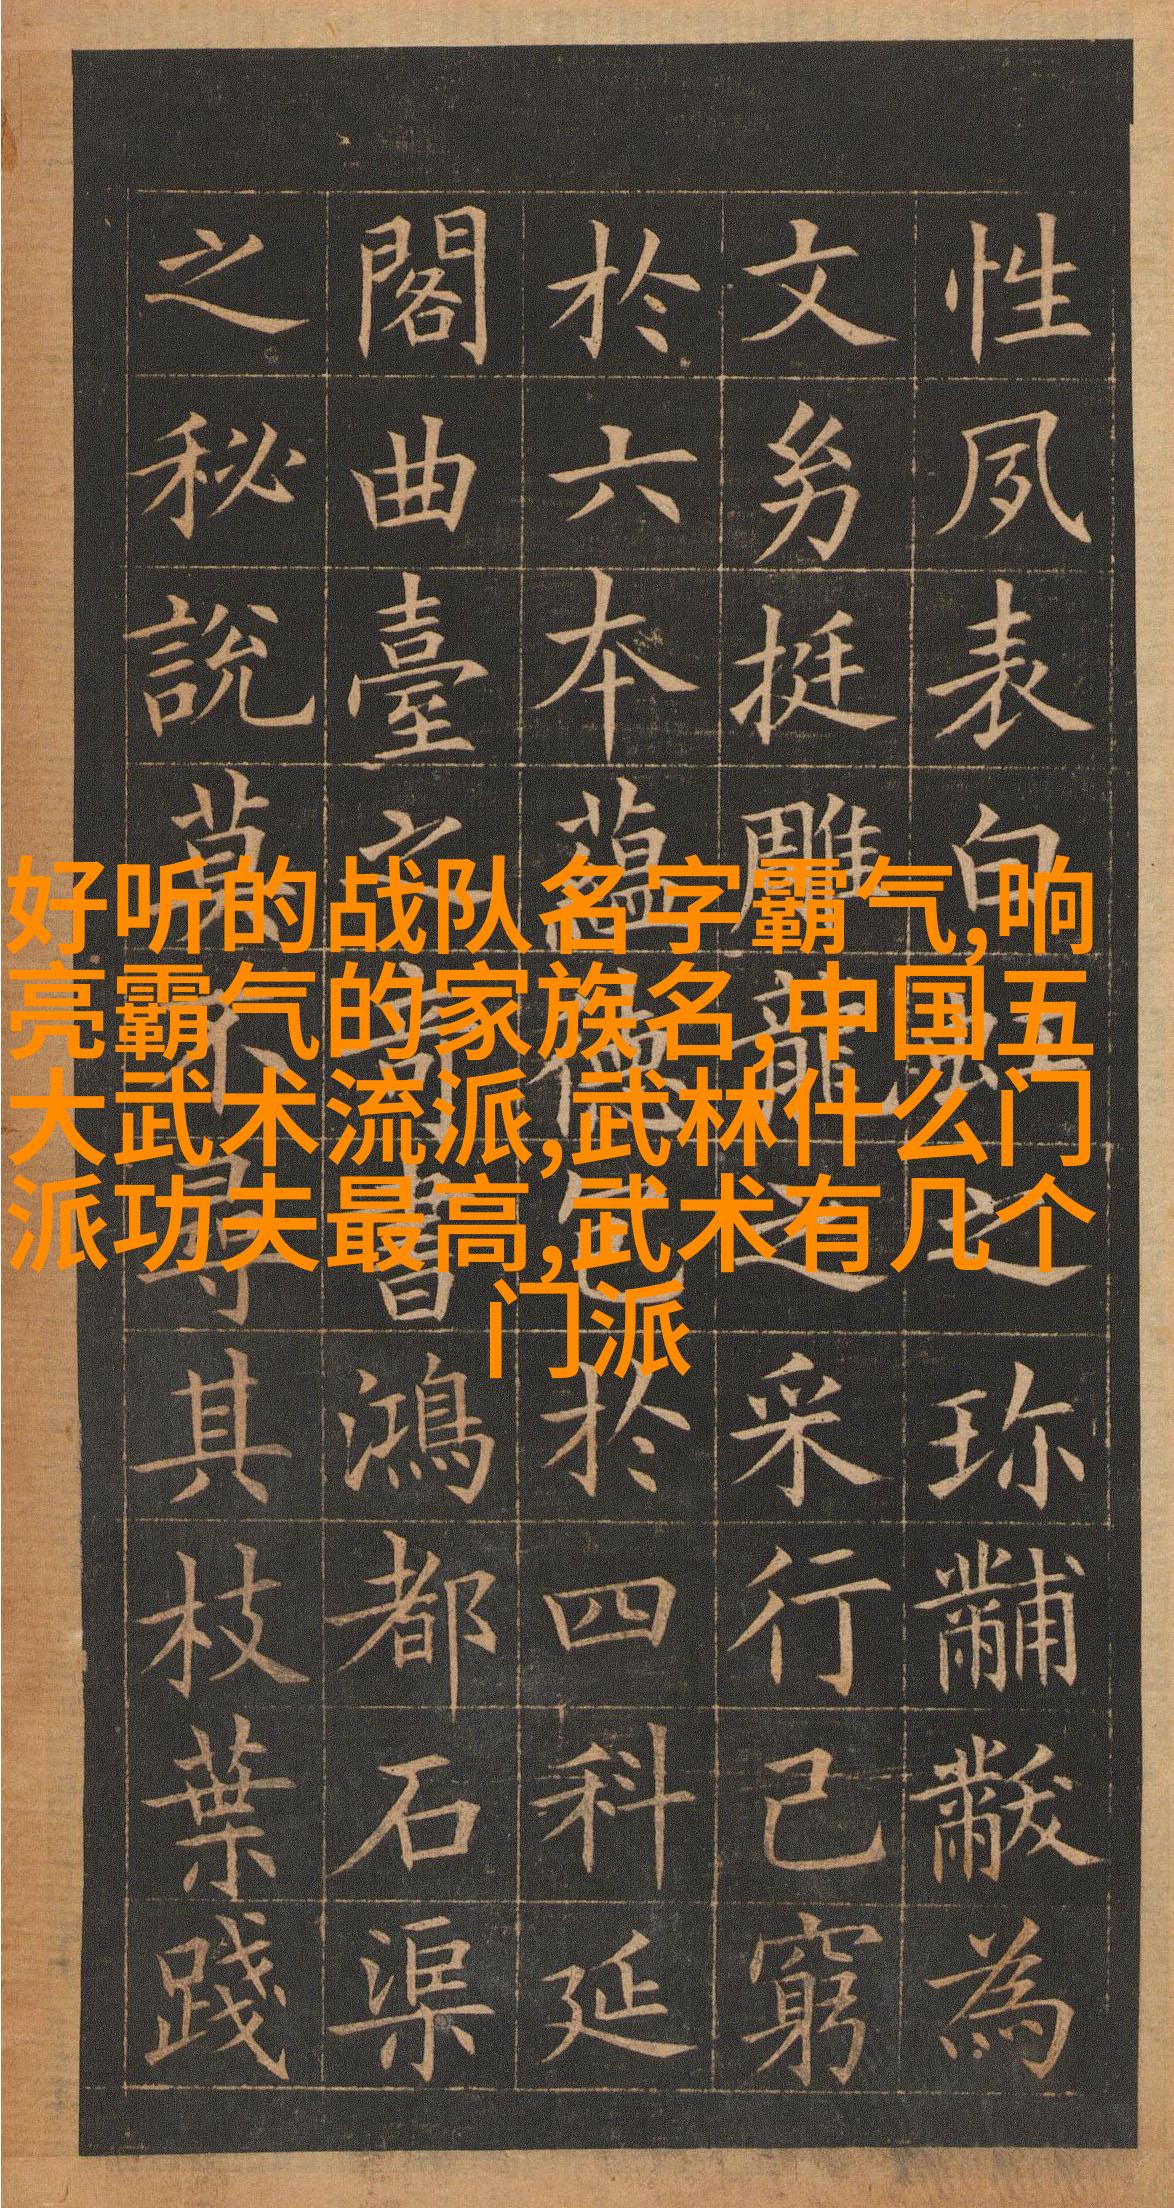 好听的战队名字霸气,响
亮霸气的家族名,中国五
大武术流派,武林什么门
派功夫最高,武术有几个
门派
性夙表白虹之珎黼黻為
文㓜挺雕龍之采行己窮
於六本蘊德包於四科延
閣曲臺之奇書鴻都石渠
之秘說莫不尋其枝葉踐